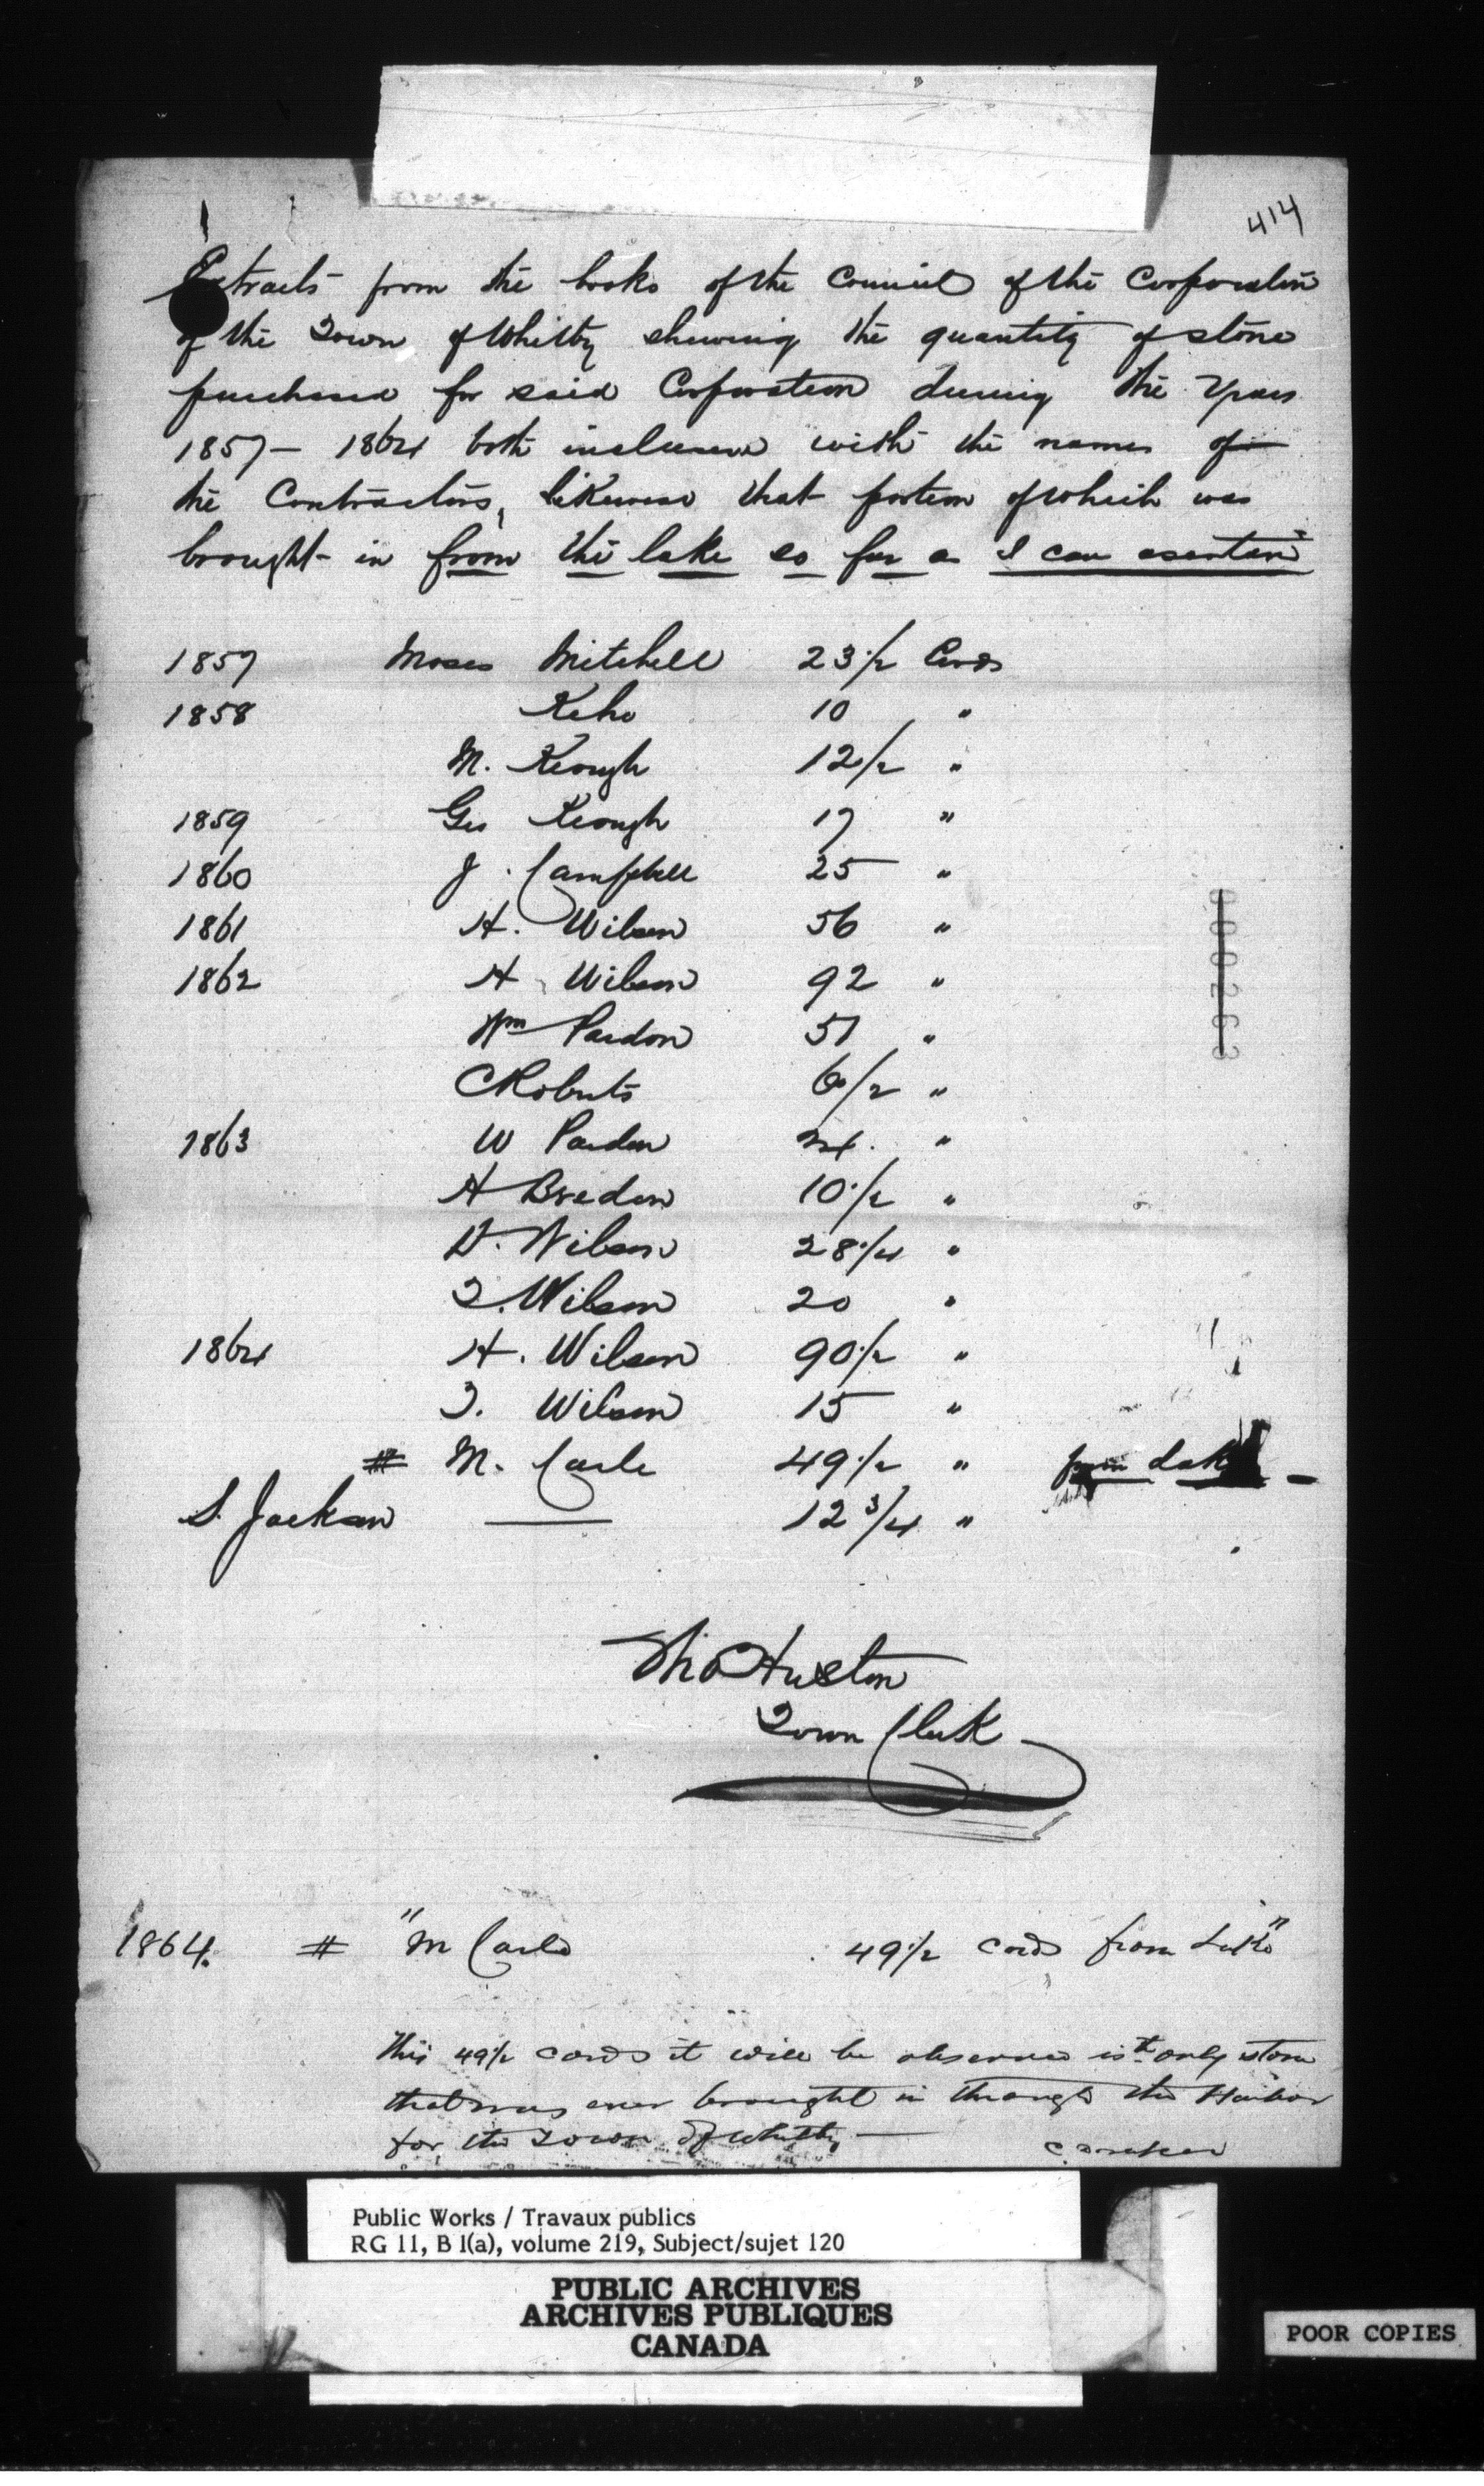 414
Extracts from the books of the Council of the Corporation
of the Town of Whitby shewing the quantity of stone
purchased for said Corporation during the Years
1857 - 1864 both inclusive with the names of
the Contractors, likewise that portion of which was
brought in from the lake so far as I can
1857 Moses Mitchell 23 1/2 Cords
1858 Keho 10 "
M. Keough 12 1/2 "
1859 Geo Keough 17 "
1860 J. Campbell 25 "
1861 H. Wilson 56 "
1862 H. Wilson 92 "
Wm Pardon 51 "
C Roberts 6 1/2 "
1863 W Pardon "
H Bredon 10 1/2 "
H. Wilson 28 1/4 "
T. Wilson 20 "
1864 H. Wilson 90 1/2 "
T. Wilson 15 "
# M. Carle 49 1/2 " from Lake
S. Jackson — 12 3/4 "
Thos Huston
Town Clerk
1864. # "M Carle 49 1/2 cords from Lake"
This 49 1/2 cords it will be observed is the only stone
that was ever brought in through the Harbor
for the Town of Whitby —
000263
Public Works / Travaux publics
RG 11, B 1(a), volume 219, Subject/sujet 120
PUBLIC ARCHIVES
ARCHIVES PUBLIQUES
CANADA
POOR COPIES